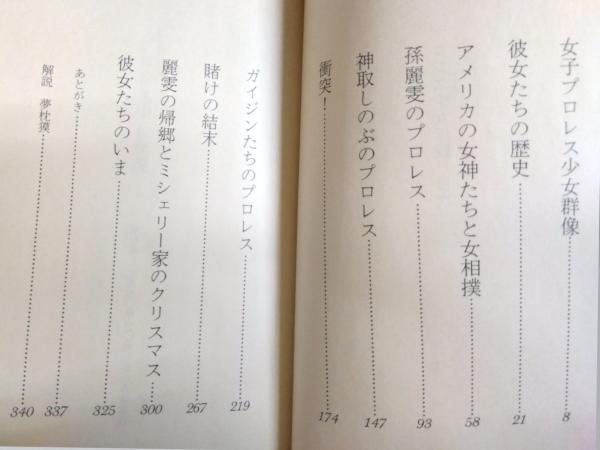 女子プロレス少女群像……8
彼女たちの歴史……21
アメリカの女神たちと女相撲……58
孫麗雯のプロレス……93
神取しのぶのプロレス……147
衝突!……174
ガイジンたちのプロレス……219
賭けの結末……267
麗雯の帰郷とミシェリー家のクリスマス……300
彼女たちのいま……325
あとがき……337
解説 夢枕獏……340